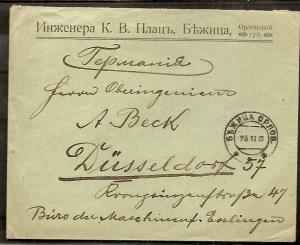 Инженера К. В. Плацъ, Бѣжица, Орловской губ.
Германія
Herrn Oberingenieur
A. Beck
БѢЖИЦА ОРЛОВ.
Düsseldorf 57
Kronprinzenstraße 47
Büro der Maschinenf. Esslingen